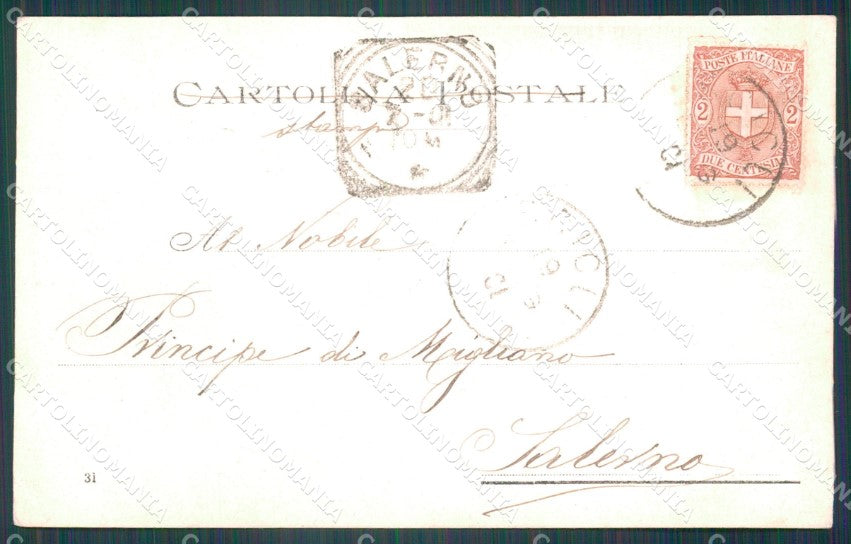 CARTOLINA POSTALE
stampe
SALERNO
POSTE ITALIANE
2 2
DUE CENTESIMI
Al Nobile
Principe di Migliano
Salerno
31
CARTOLINOMANIA